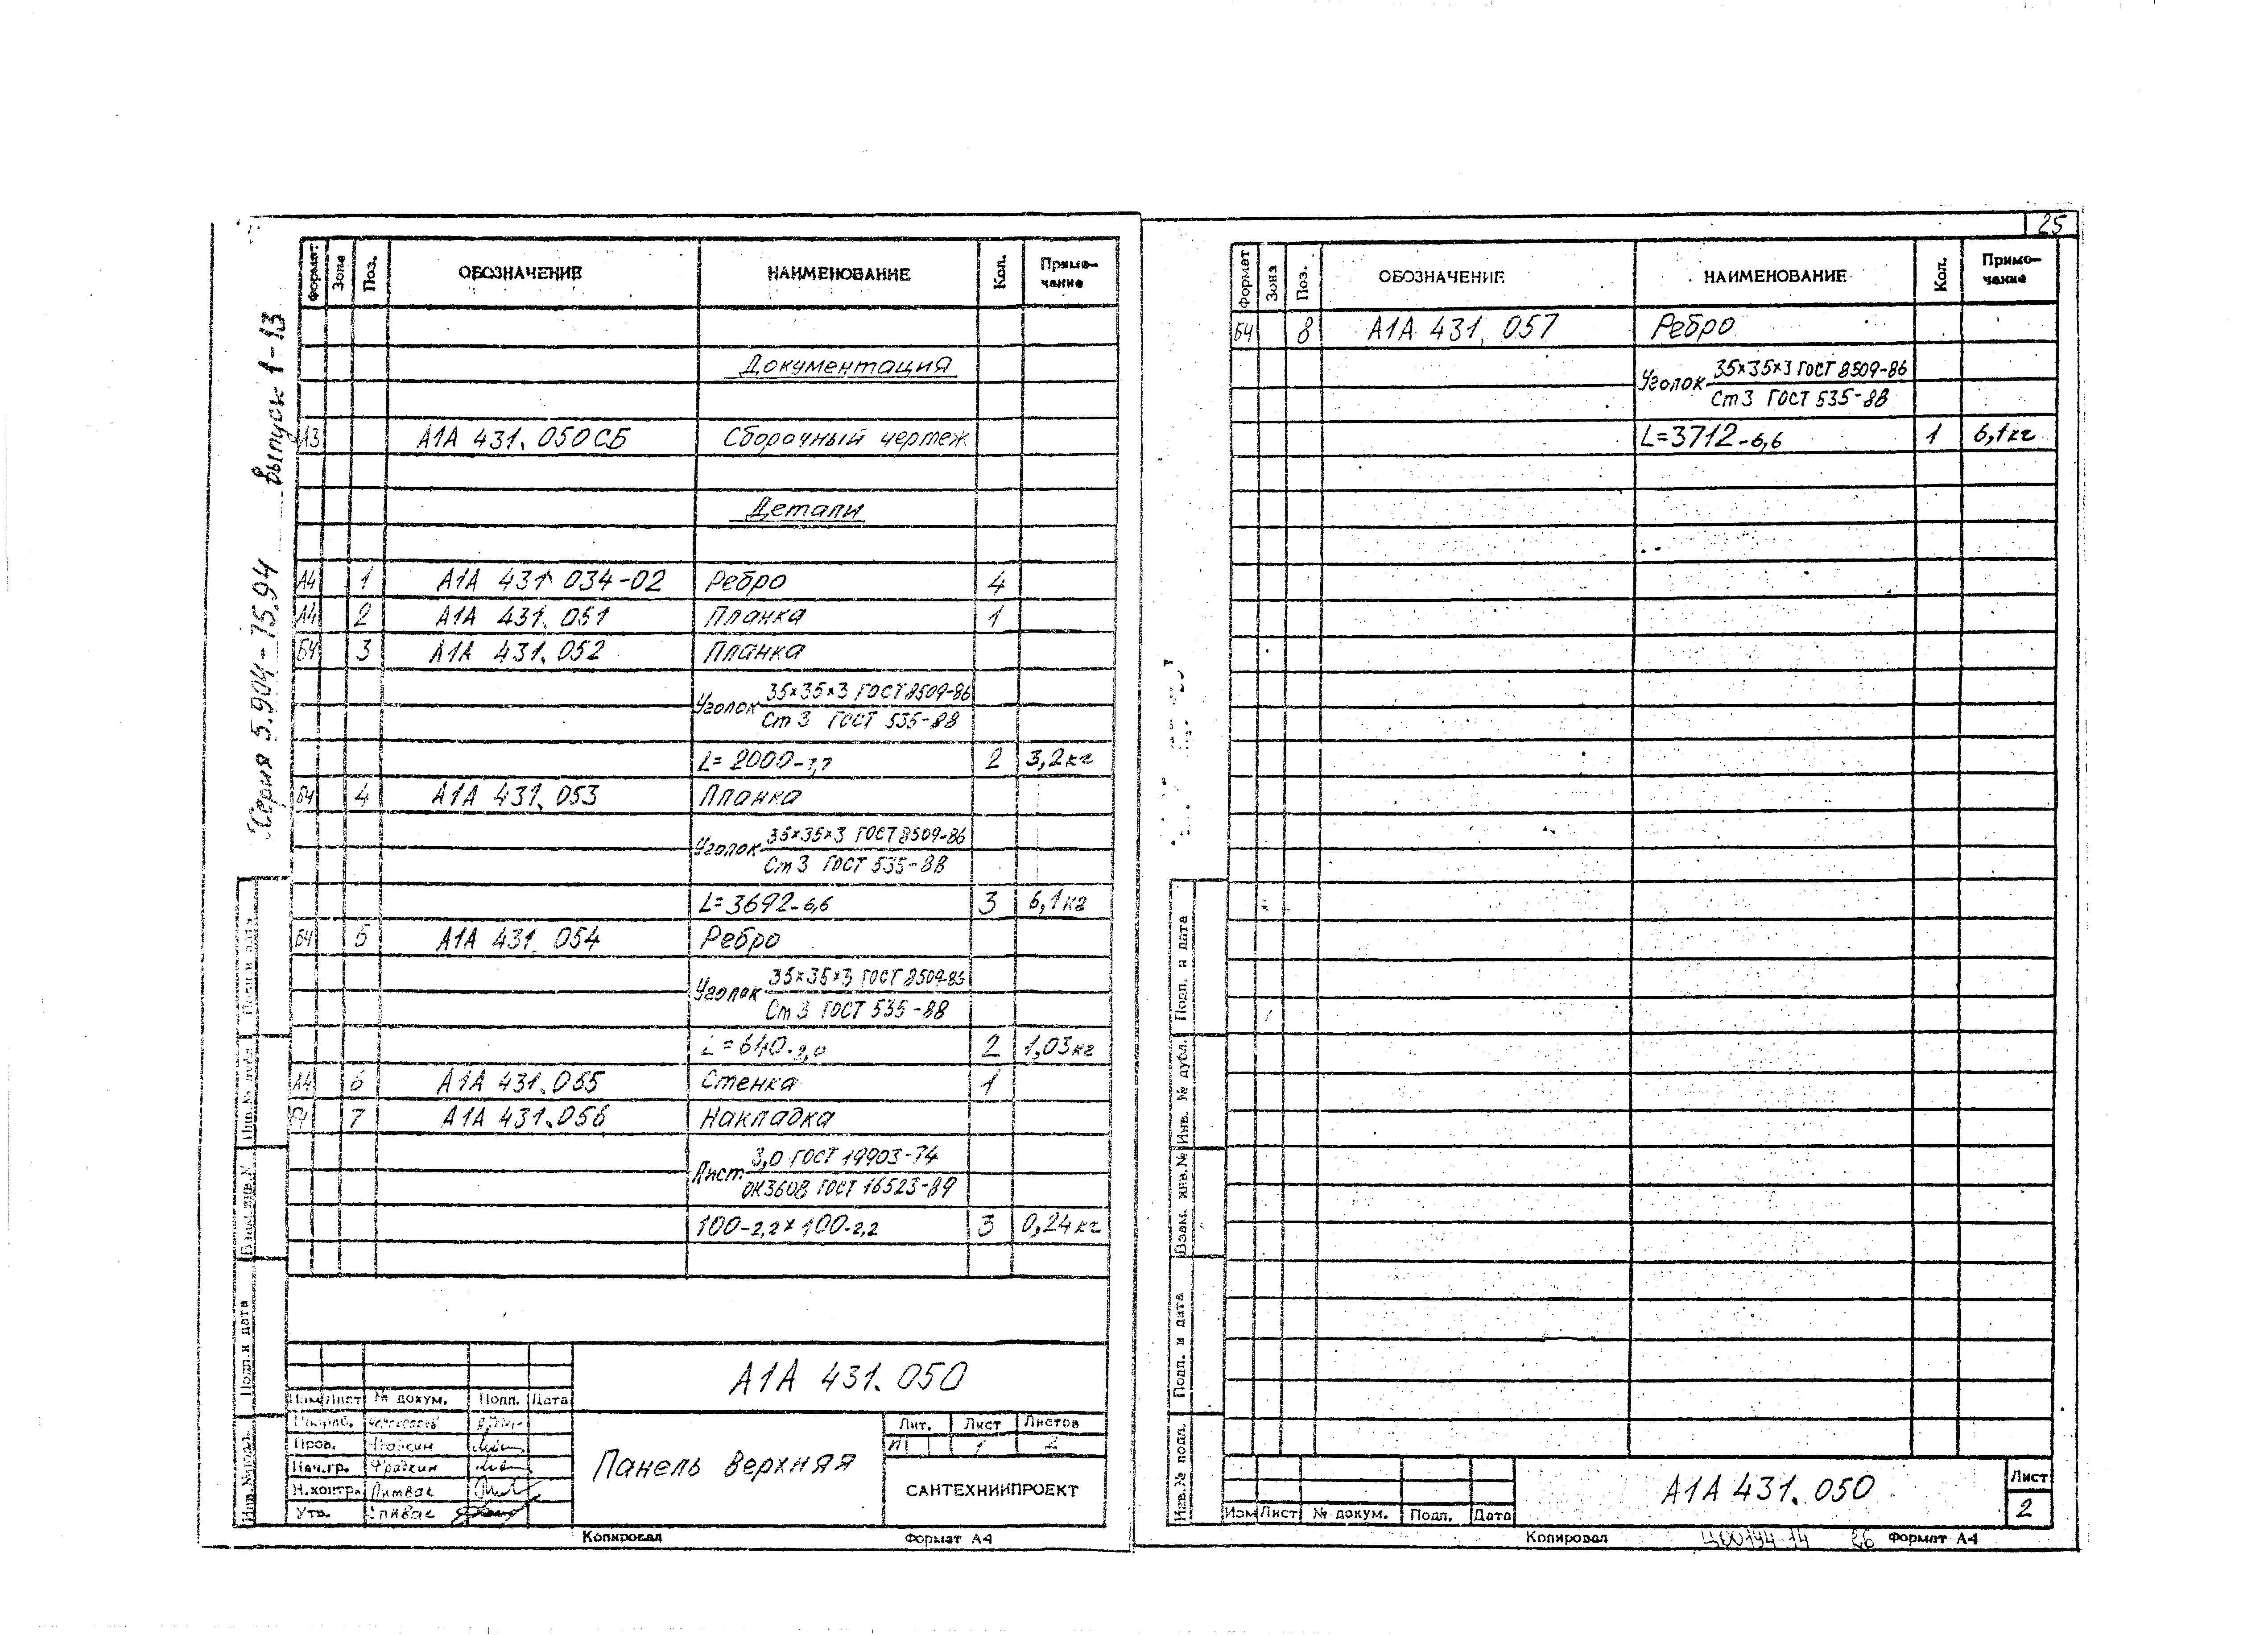 Серия 5.904-75.94 Выпуск 1-13
Формат Зона Поз. ОБОЗНАЧЕНИЕ НАИМЕНОВАНИЕ Кол. Приме-
чание
Документация
А3 А1А 431.050СБ Сборочный чертеж
Детали
А4 1 А1А 431 034-02 Ребро 4
А4 2 А1А 431.051 Планка 1
БЧ 3 А1А 431.052 Планка
Уголок 35×35×3 ГОСТ 8509-86
Ст3 ГОСТ 535-88
L=2000-3,7 2 3,2кг
БЧ 4 А1А 431.053 Планка
Уголок 35×35×3 ГОСТ 8509-86
Ст3 ГОСТ 535-88
L=3692-6,6 3 6,1кг
БЧ 5 А1А 431.054 Ребро
Уголок 35×35×3 ГОСТ 8509-86
Ст3 ГОСТ 535-88
L=640-2,0 2 1,03кг
А4 6 А1А 431.055 Стенка 1
БЧ 7 А1А 431.056 Накладка
Лист 3,0 ГОСТ 19903-74
ОК360В ГОСТ 16523-89
100-2,2×100-2,2 3 0,24кг
Подп. и дата
Инв. № дубл.
Взам. инв. №
Подп. и дата
Инв. № подл.
А1А 431.050
Изм Лист № докум. Подп. Дата
Разраб.
Пров. Фрадкин
Нач.гр. Фрадкин
Н.контр. Литвак
Утв. Спивак
Панель верхняя
Лит. Лист Листов
И 1 2
САНТЕХНИИПРОЕКТ
Копировал Формат А4
25
Формат Зона Поз. ОБОЗНАЧЕНИЕ НАИМЕНОВАНИЕ Кол. Приме-
чание
БЧ 8 А1А 431.057 Ребро
Уголок 35×35×3 ГОСТ 8509-86
Ст3 ГОСТ 535-88
L=3712-6,6 1 6,1кг
Подп. и дата
Инв. № дубл.
Взам. инв.№
Подп. и дата
Инв.№ подл.
Изм Лист № докум. Подп. Дата
А1А 431.050
Лист
2
Копировал Ц00194-14 26 Формат А4